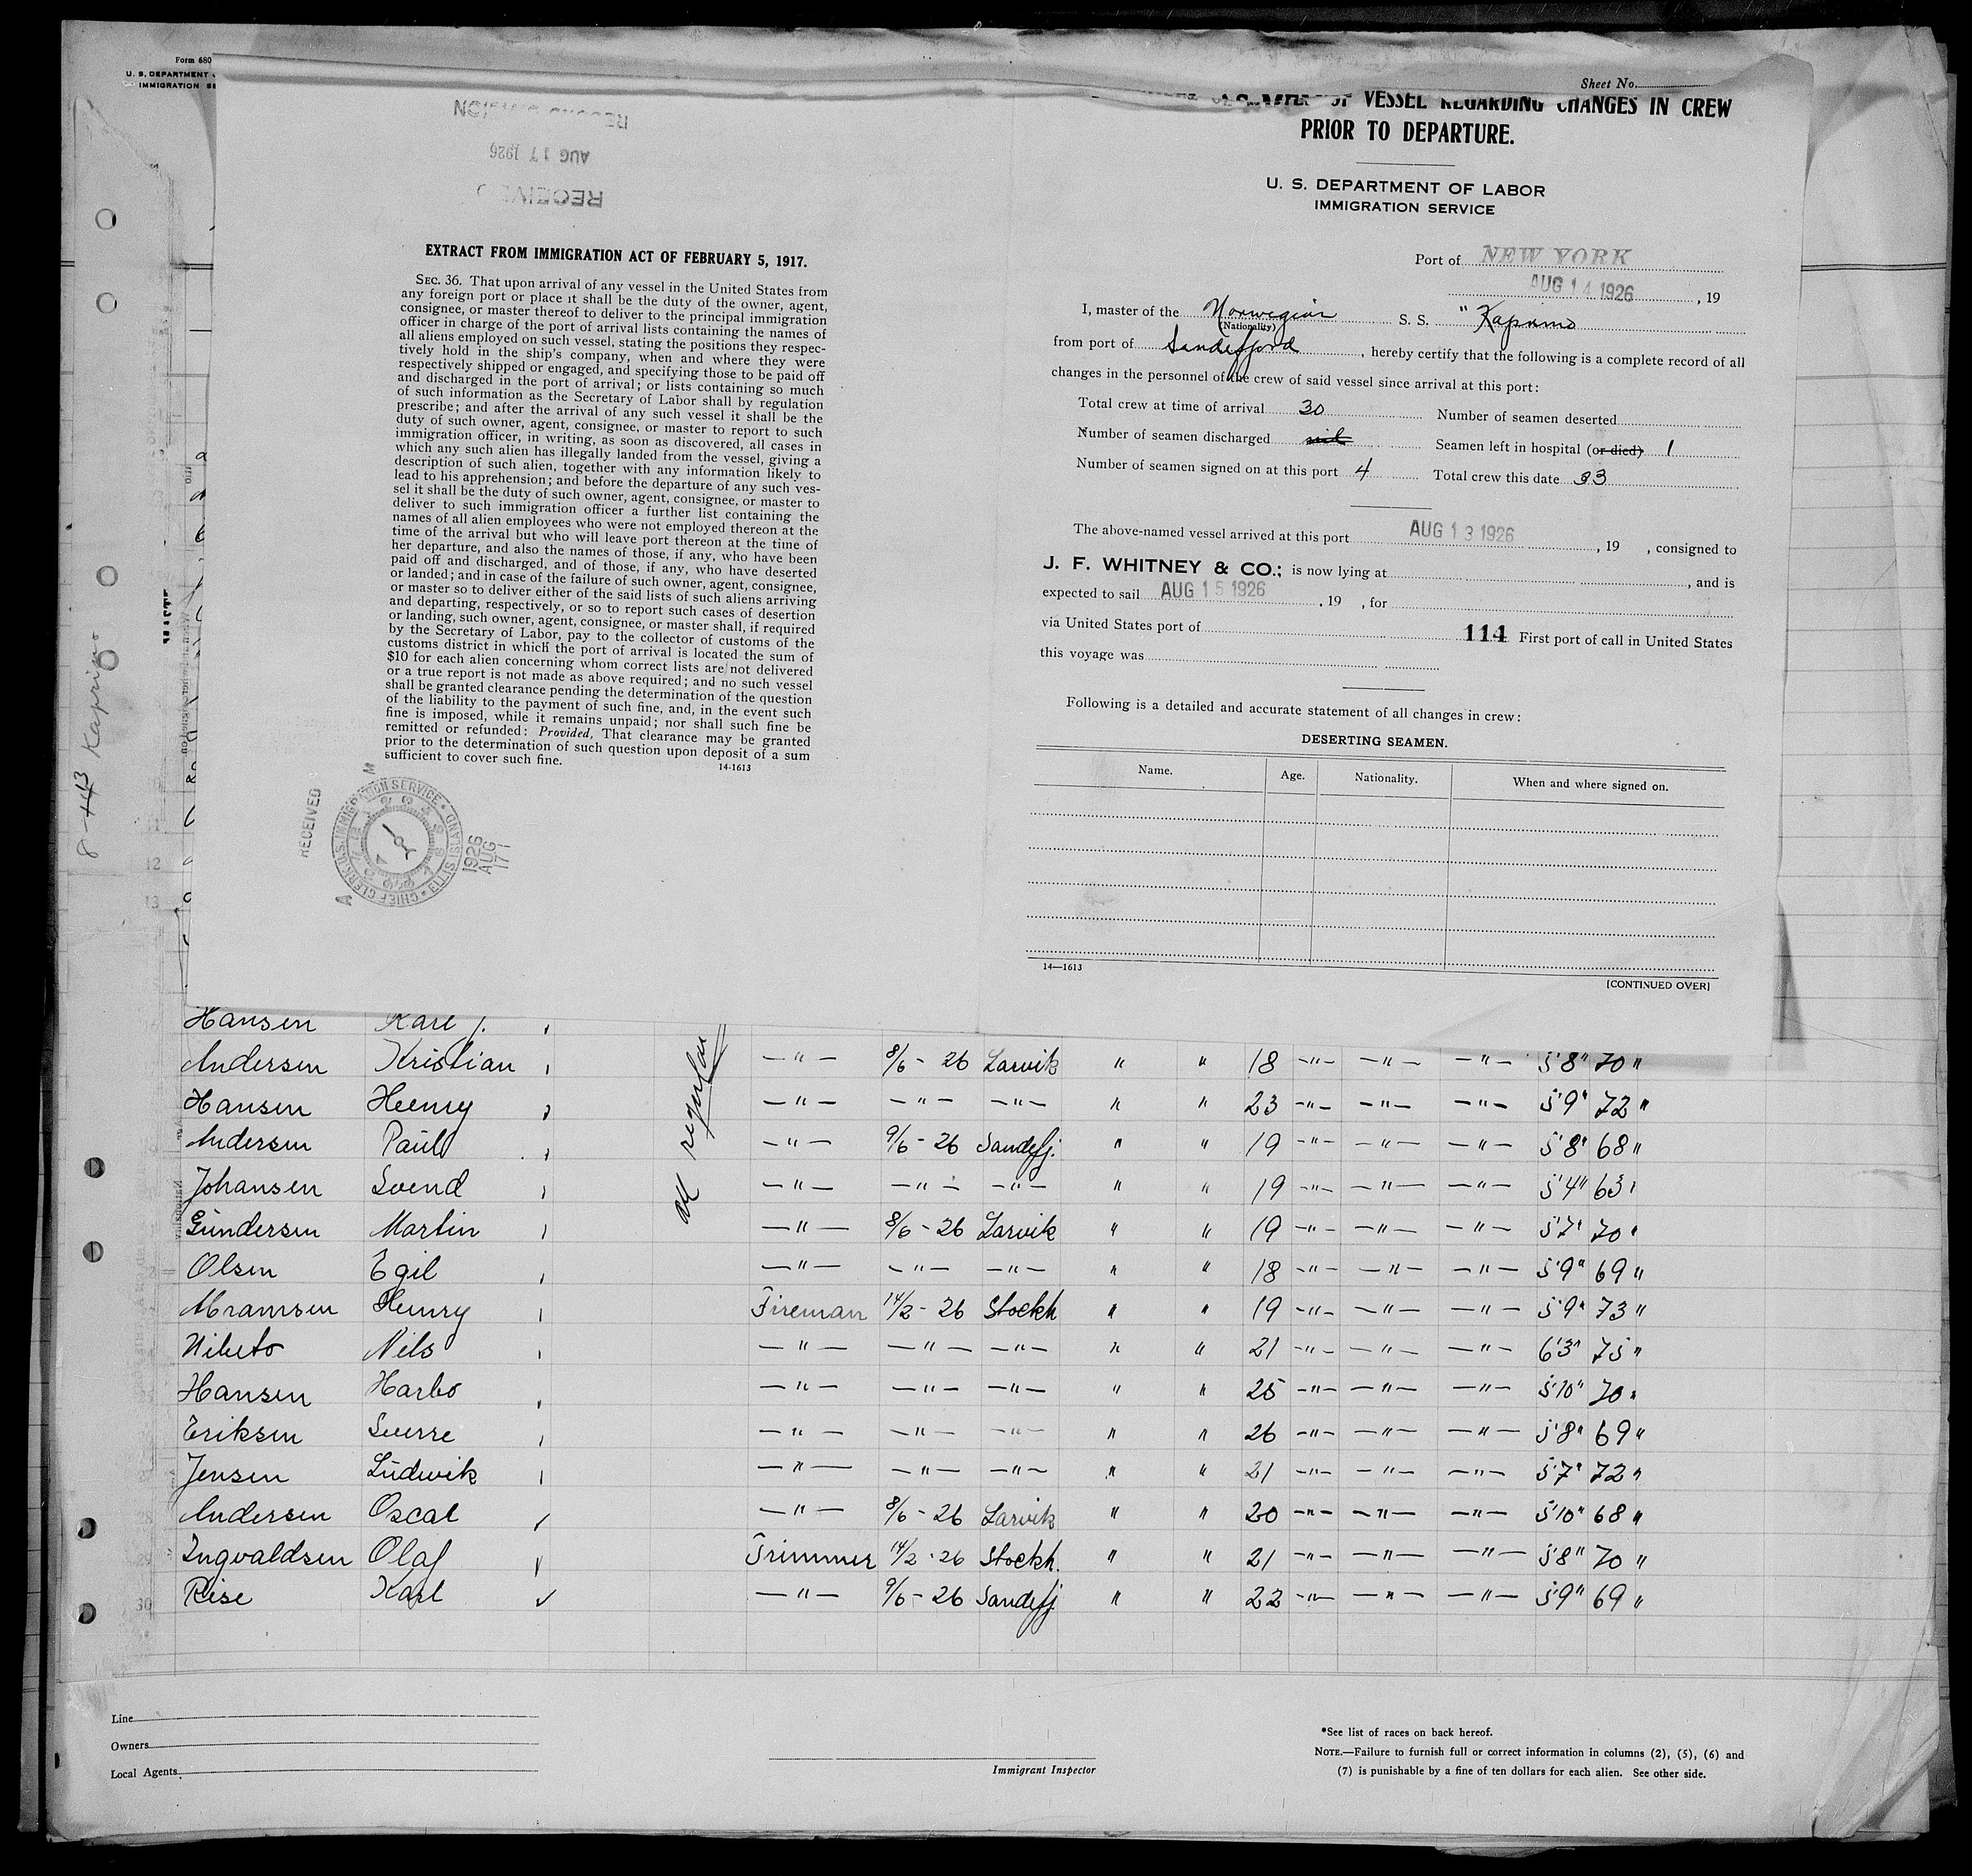 Form 680
U. S. DEPARTMENT
IMMIGRATION SE
Sheet No.
RECORDS DIVISION
AUG 17 1926
RECEIVED
EXTRACT FROM IMMIGRATION ACT OF FEBRUARY 5, 1917.
SEC. 36. That upon arrival of any vessel in the United States from
any foreign port or place it shall be the duty of the owner, agent,
consignee, or master thereof to deliver to the principal immigration
officer in charge of the port of arrival lists containing the names of
all aliens employed on such vessel, stating the positions they respec-
tively hold in the ship's company, when and where they were
respectively shipped or engaged, and specifying those to be paid off
and discharged in the port of arrival; or lists containing so much
of such information as the Secretary of Labor shall by regulation
prescribe; and after the arrival of any such vessel it shall be the
duty of such owner, agent, consignee, or master to report to such
immigration officer, in writing, as soon as discovered, all cases in
which any such alien has illegally landed from the vessel, giving a
description of such alien, together with any information likely to
lead to his apprehension; and before the departure of any such ves-
sel it shall be the duty of such owner, agent, consignee, or master to
deliver to such immigration officer a further list containing the
names of all alien employees who were not employed thereon at the
time of the arrival but who will leave port thereon at the time of
her departure, and also the names of those, if any, who have been
paid off and discharged, and of those, if any, who have deserted
or landed; and in case of the failure of such owner, agent, consignee,
or master so to deliver either of the said lists of such aliens arriving
and departing, respectively, or so to report such cases of desertion
or landing, such owner, agent, consignee, or master shall, if required
by the Secretary of Labor, pay to the collector of customs of the
customs district in which the port of arrival is located the sum of
$10 for each alien concerning whom correct lists are not delivered
or a true report is not made as above required; and no such vessel
shall be granted clearance pending the determination of the question
of the liability to the payment of such fine, and, in the event such
fine is imposed, while it remains unpaid; nor shall such fine be
remitted or refunded: Provided, That clearance may be granted
prior to the determination of such question upon deposit of a sum
sufficient to cover such fine.
14-1613
RECEIVED
CHIEF CLERK U.S. IMMIGRATION SERVICE ELLIS ISLAND
1926
AUG
17
OF VESSEL REGARDING CHANGES IN CREW
PRIOR TO DEPARTURE.
U. S. DEPARTMENT OF LABOR
IMMIGRATION SERVICE
Port of NEW YORK
AUG 14 1926, 19
I, master of the Norwegian S. S. "Kaprino
(Nationality)
from port of Sandefjord, hereby certify that the following is a complete record of all
changes in the personnel of the crew of said vessel since arrival at this port:
Total crew at time of arrival 30 Number of seamen deserted
Number of seamen discharged nil Seamen left in hospital (or died) 1
Number of seamen signed on at this port 4 Total crew this date 33
The above-named vessel arrived at this port AUG 13 1926, 19 , consigned to
J. F. WHITNEY & CO.; is now lying at , and is
expected to sail AUG 15 1926, 19 , for
via United States port of 114 First port of call in United States
this voyage was
Following is a detailed and accurate statement of all changes in crew:
DESERTING SEAMEN.
Name. Age. Nationality. When and where signed on.
14—1613
[CONTINUED OVER]
8-13 Kaprino
all regular
Hansen Karl J.
Andersen Kristian —"— 8/6-26 Larvik " " 18 —"— —"— —"— 5'8" 70 "
Hansen Henry —"— —"— —"— " " 23 —"— —"— —"— 5'9" 72 "
Andersen Paul —"— 9/6-26 Sandefj. " " 19 —"— —"— —"— 5'8" 68 "
Johansen Svend —"— —"— —"— " " 19 —"— —"— —"— 5'4" 63 "
Gundersen Martin —"— 8/6-26 Larvik " " 19 —"— —"— —"— 5'7" 70 "
Olsen Egil —"— —"— —"— " " 18 —"— —"— —"— 5'9" 69 "
Abramsen Henry Fireman 14/2-26 Stockh " " 19 —"— —"— —"— 5'9" 73 "
Nils —"— —"— —"— " " 21 —"— —"— —"— 6'3" 75 "
Hansen Harbo —"— —"— —"— " " 25 —"— —"— —"— 5'10" 70 "
Eriksen Sverre —"— —"— —"— " " 26 —"— —"— —"— 5'8" 69 "
Jensen Ludwik —"— —"— —"— " " 21 —"— —"— —"— 5'7" 72 "
Andersen Oscar —"— 8/6-26 Larvik " " 20 —"— —"— —"— 5'10" 68 "
Ingvaldsen Olaf Trimmer 14/2-26 Stockh. " " 21 —"— —"— —"— 5'8" 70 "
30 Reise Karl —"— 9/6-26 Sandefj. " " 22 —"— —"— —"— 5'9" 69 "
Line
Owners
Local Agents
Immigrant Inspector
*See list of races on back hereof.
NOTE.—Failure to furnish full or correct information in columns (2), (5), (6) and
(7) is punishable by a fine of ten dollars for each alien. See other side.